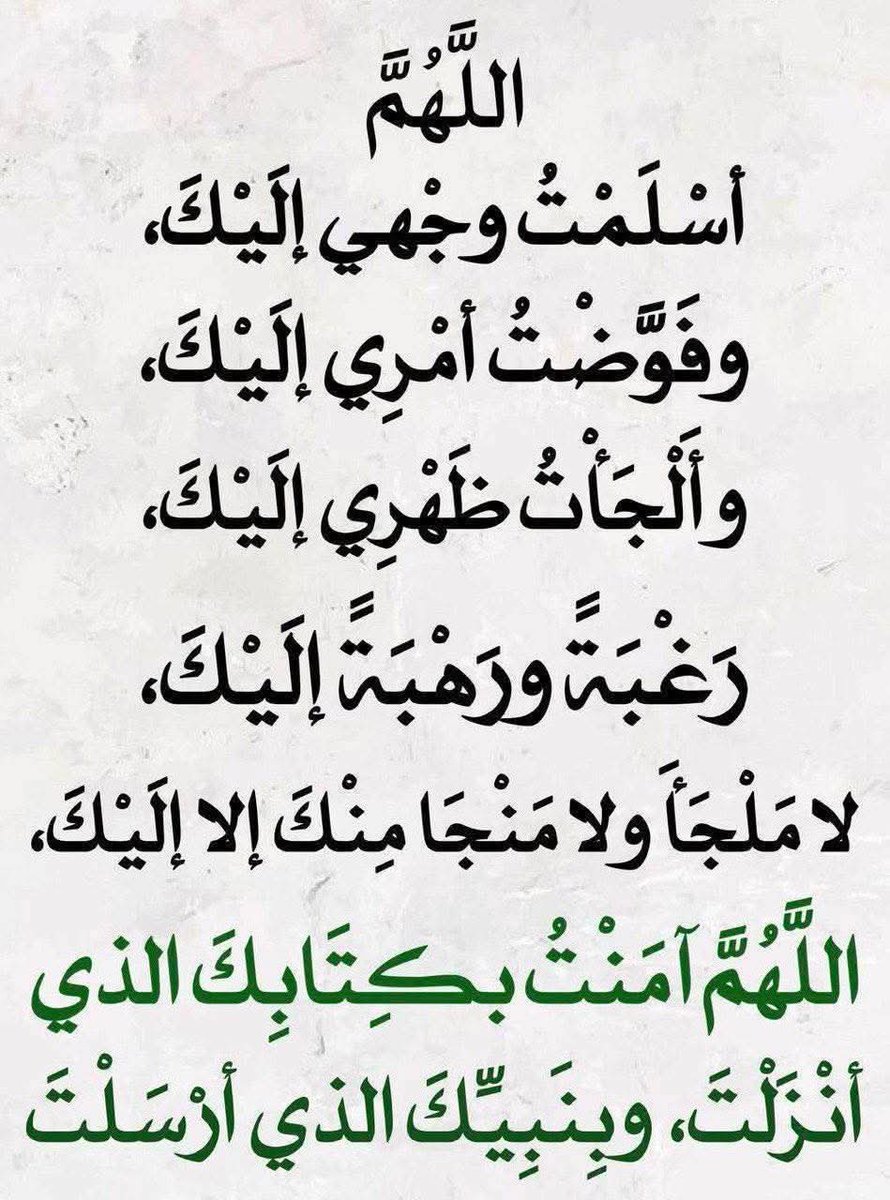 اللَّهُمَّ
أسْلَمْتُ وجْهي إلَيْكَ،
وفَوَّضْتُ أمْرِي إلَيْكَ،
وأَلْجَأْتُ ظَهْرِي إلَيْكَ،
رَغْبَةً ورَهْبَةً إلَيْكَ،
لا مَلْجَأَ ولا مَنْجَا مِنْكَ إلا إلَيْكَ،
اللَّهُمَّ آمَنْتُ بكِتَابِكَ الذي
أنْزَلْتَ، وبِنَبِيِّكَ الذي أرْسَلْتَ